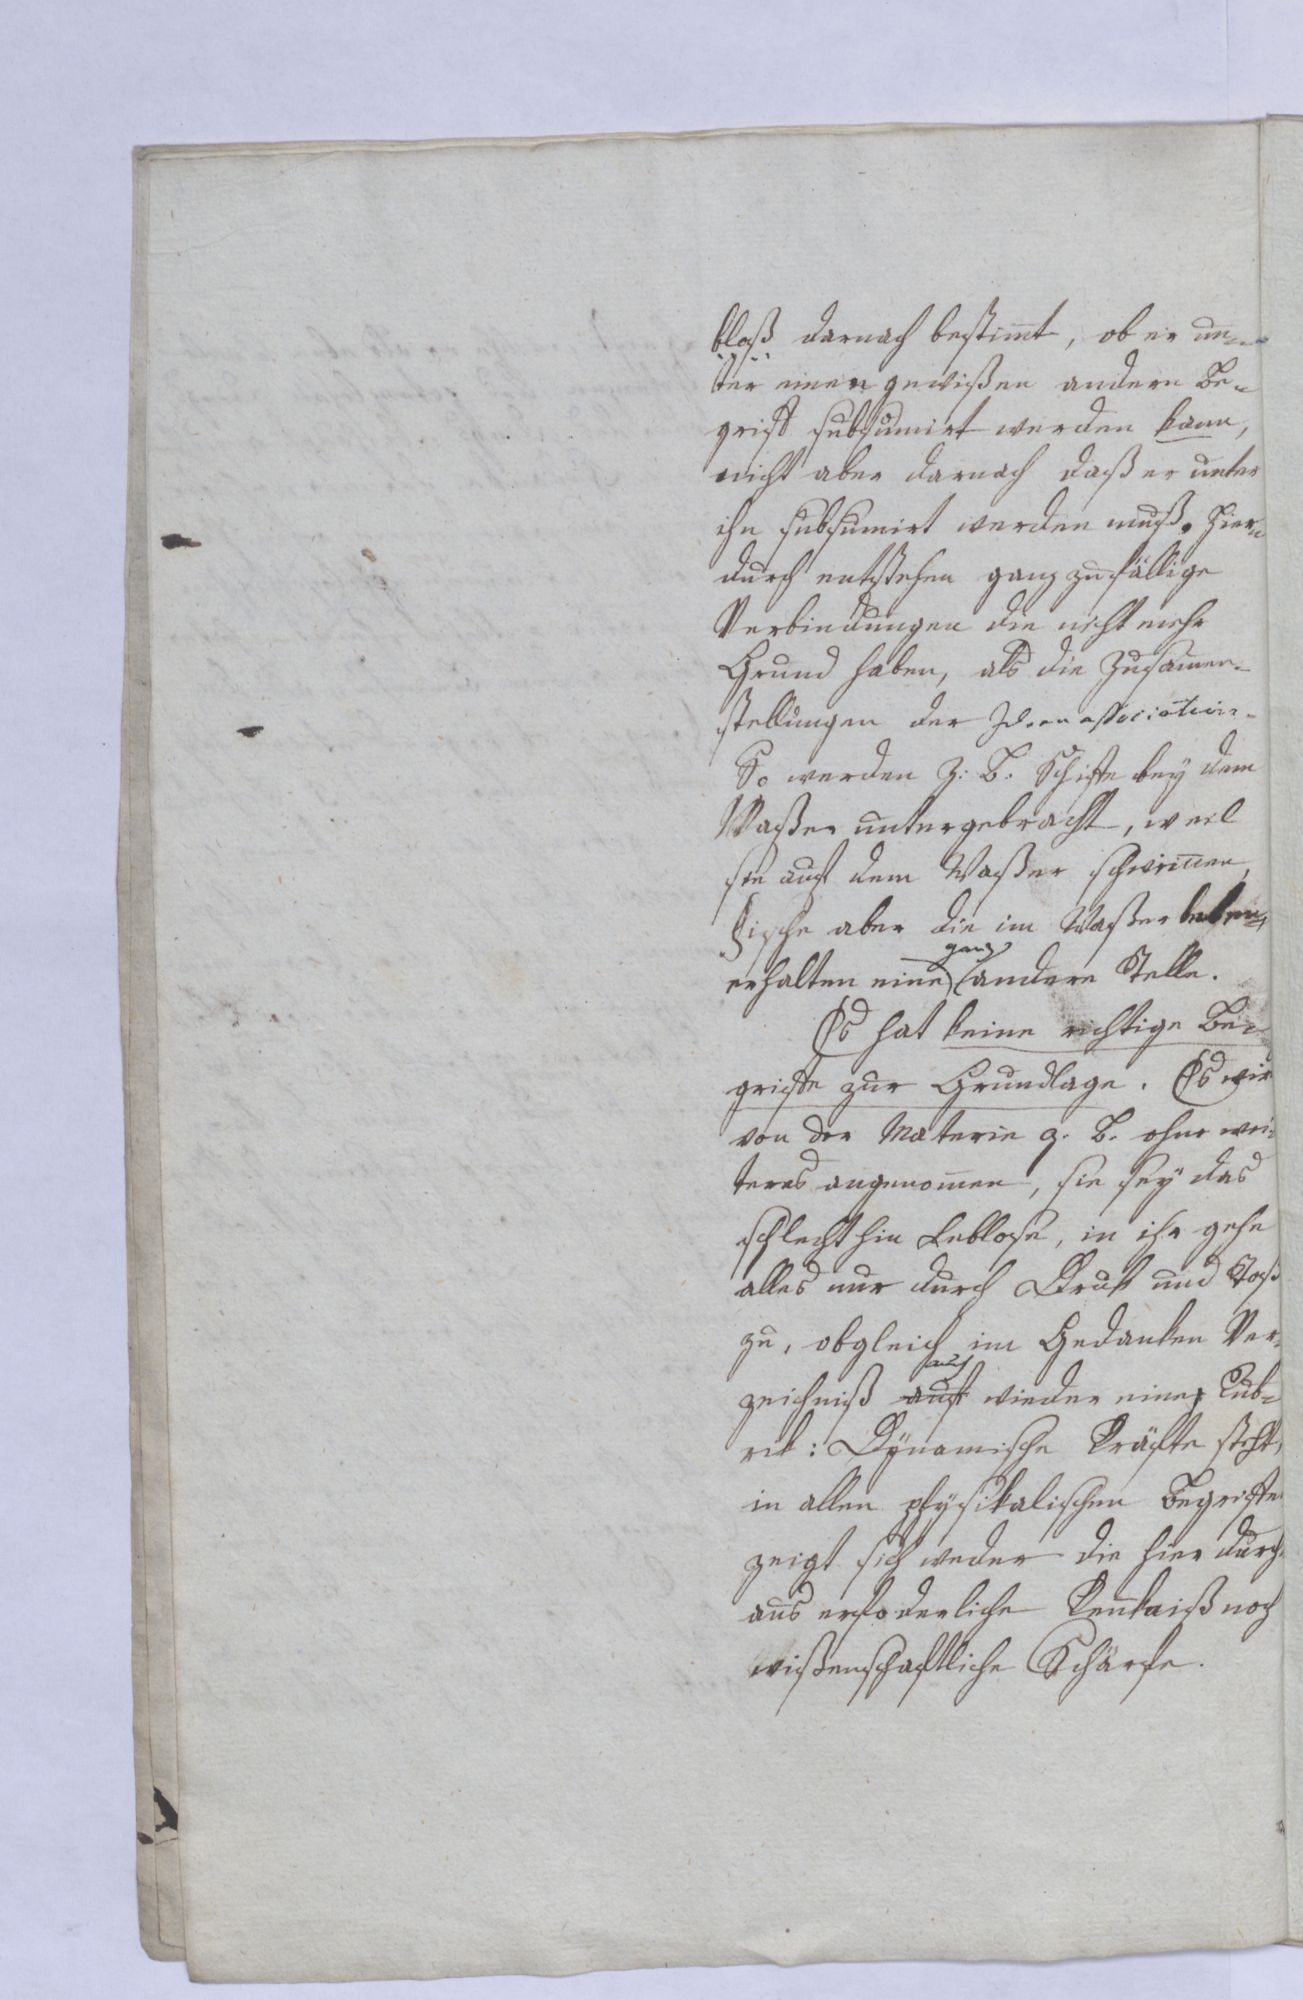 bloß darnach bestimt, ob er un-
ter einen gewißen andern Be-
griff subsumirt werden kann,
nicht aber darnach daß er unter
ihn subsumirt werden muß. Hier-
durch entstehen ganz zufällige
Verbindungen die nicht mehr
Grund haben, als die Zusamen-
stellungen der Ideenassociation.
So werden z. B. Schiffe bey dem
Waßer untergebracht, weil
sie auf dem Waßer schwimen,
Fische aber die im Waßer leben,
ganz
erhalten eine andere Stelle.
Es hat keine richtige Be-
griffe zur Grundlage. Es wir
von der Materie z. B. ohne wei-
teres angenomen, sie sey das
schlechthin Leblose, in ihr gehe
alles nur durch Druk und Stoß
zu, obgleich im Gedanken Ver-
auch
zeichniß auch wieder eine Rub-
rik: Dynamische Kräfte steht,
in allen physikalischen Begriffe
zeigt sich weder die hier durch-
aus erfoderliche Kenntniß noch
wißenschaftliche Schärfe.